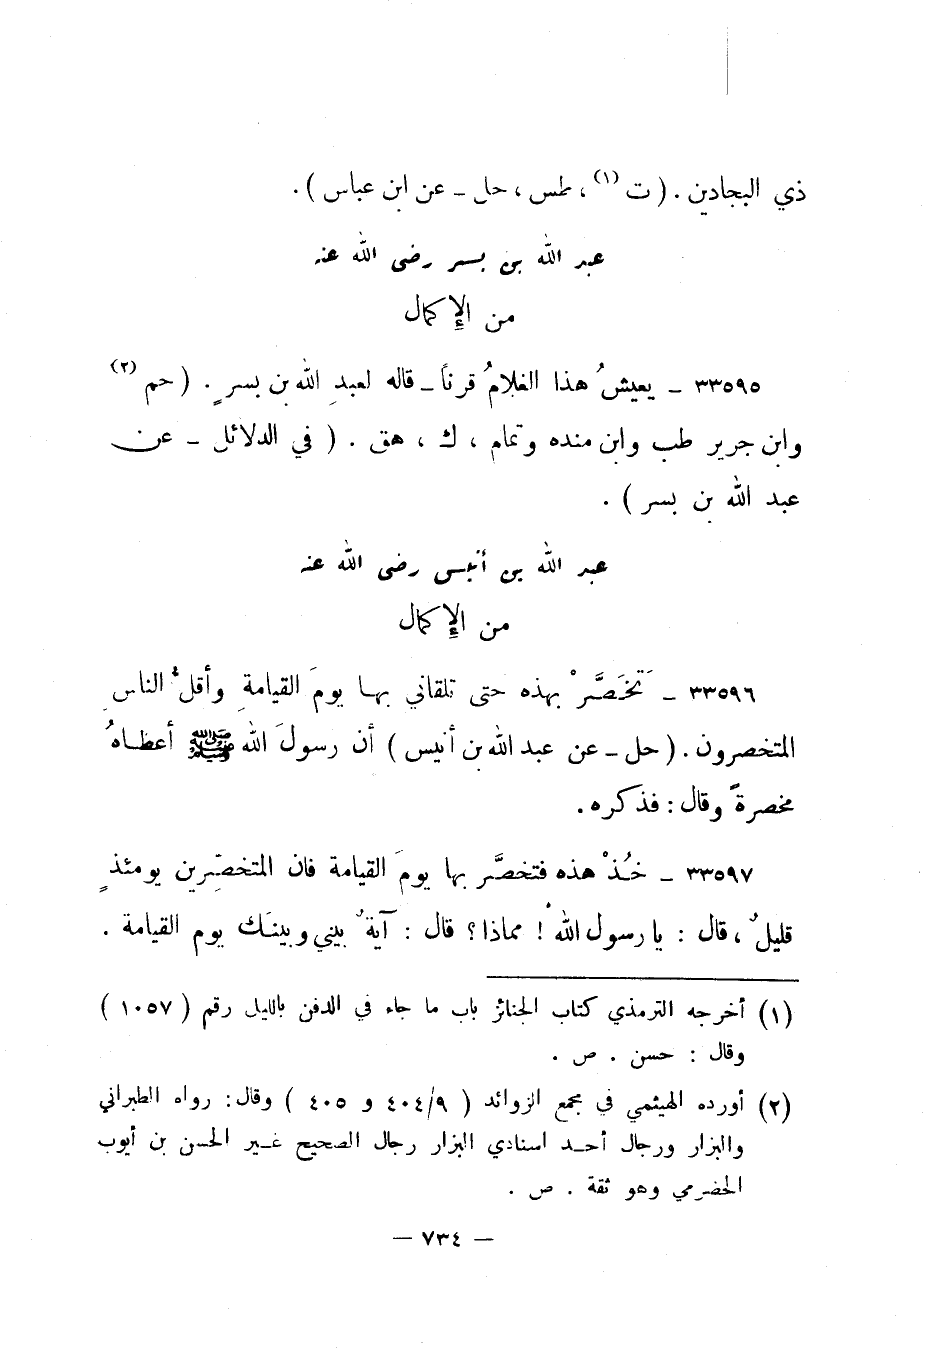 ذي البجادين . ( ت (١) ، طس ، حل ـ عن ابن عباس ) .
عبد الله بن بسر رضى الله عنه
من الإكمال
٣٣٥٩٥ ـ يعيشُ هذا الغلامُ قرناً ـ قاله لعبدِ الله بن بسرٍ . ( حم (٢)
وابن جرير طب وابن منده وتمام ، ك ، هق . ( في الدلائل ـ عن
عبد الله بن بسر ) .
عبد الله بن أنيس رضى الله عنه
من الإكمال
٣٣٥٩٦ ـ تَخَصَّرْ بهذه حتى تلقاني بها يومَ القيامةِ وأقلُّ الناسِ
المتخصرون . ( حل ـ عن عبد الله بن أنيس ) أن رسولَ الله ﷺ أعطاهُ
مخصرةً وقال : فذكره .
٣٣٥٩٧ ـ خُذْ هذه فتخصَّر بها يومَ القيامة فان المتخصِّرين يومئذٍ
قليلٌ ، قال : يا رسول الله ! مماذا ؟ قال : آيةٌ بيني وبينَك يوم القيامة .
(١) أخرجه الترمذي كتاب الجنائز باب ما جاء في الدفن بالليل رقم ( ١٠٥٧ )
وقال : حسن . ص .
(٢) أورده الهيثمي في مجمع الزوائد ( ٤٠٤/٩ و ٤٠٥ ) وقال : رواه الطبراني
والبزار ورجال أحد اسنادي البزار رجال الصحيح غير الحسن بن أيوب
الحضرمي وهو ثقة . ص .
— ٧٣٤ —